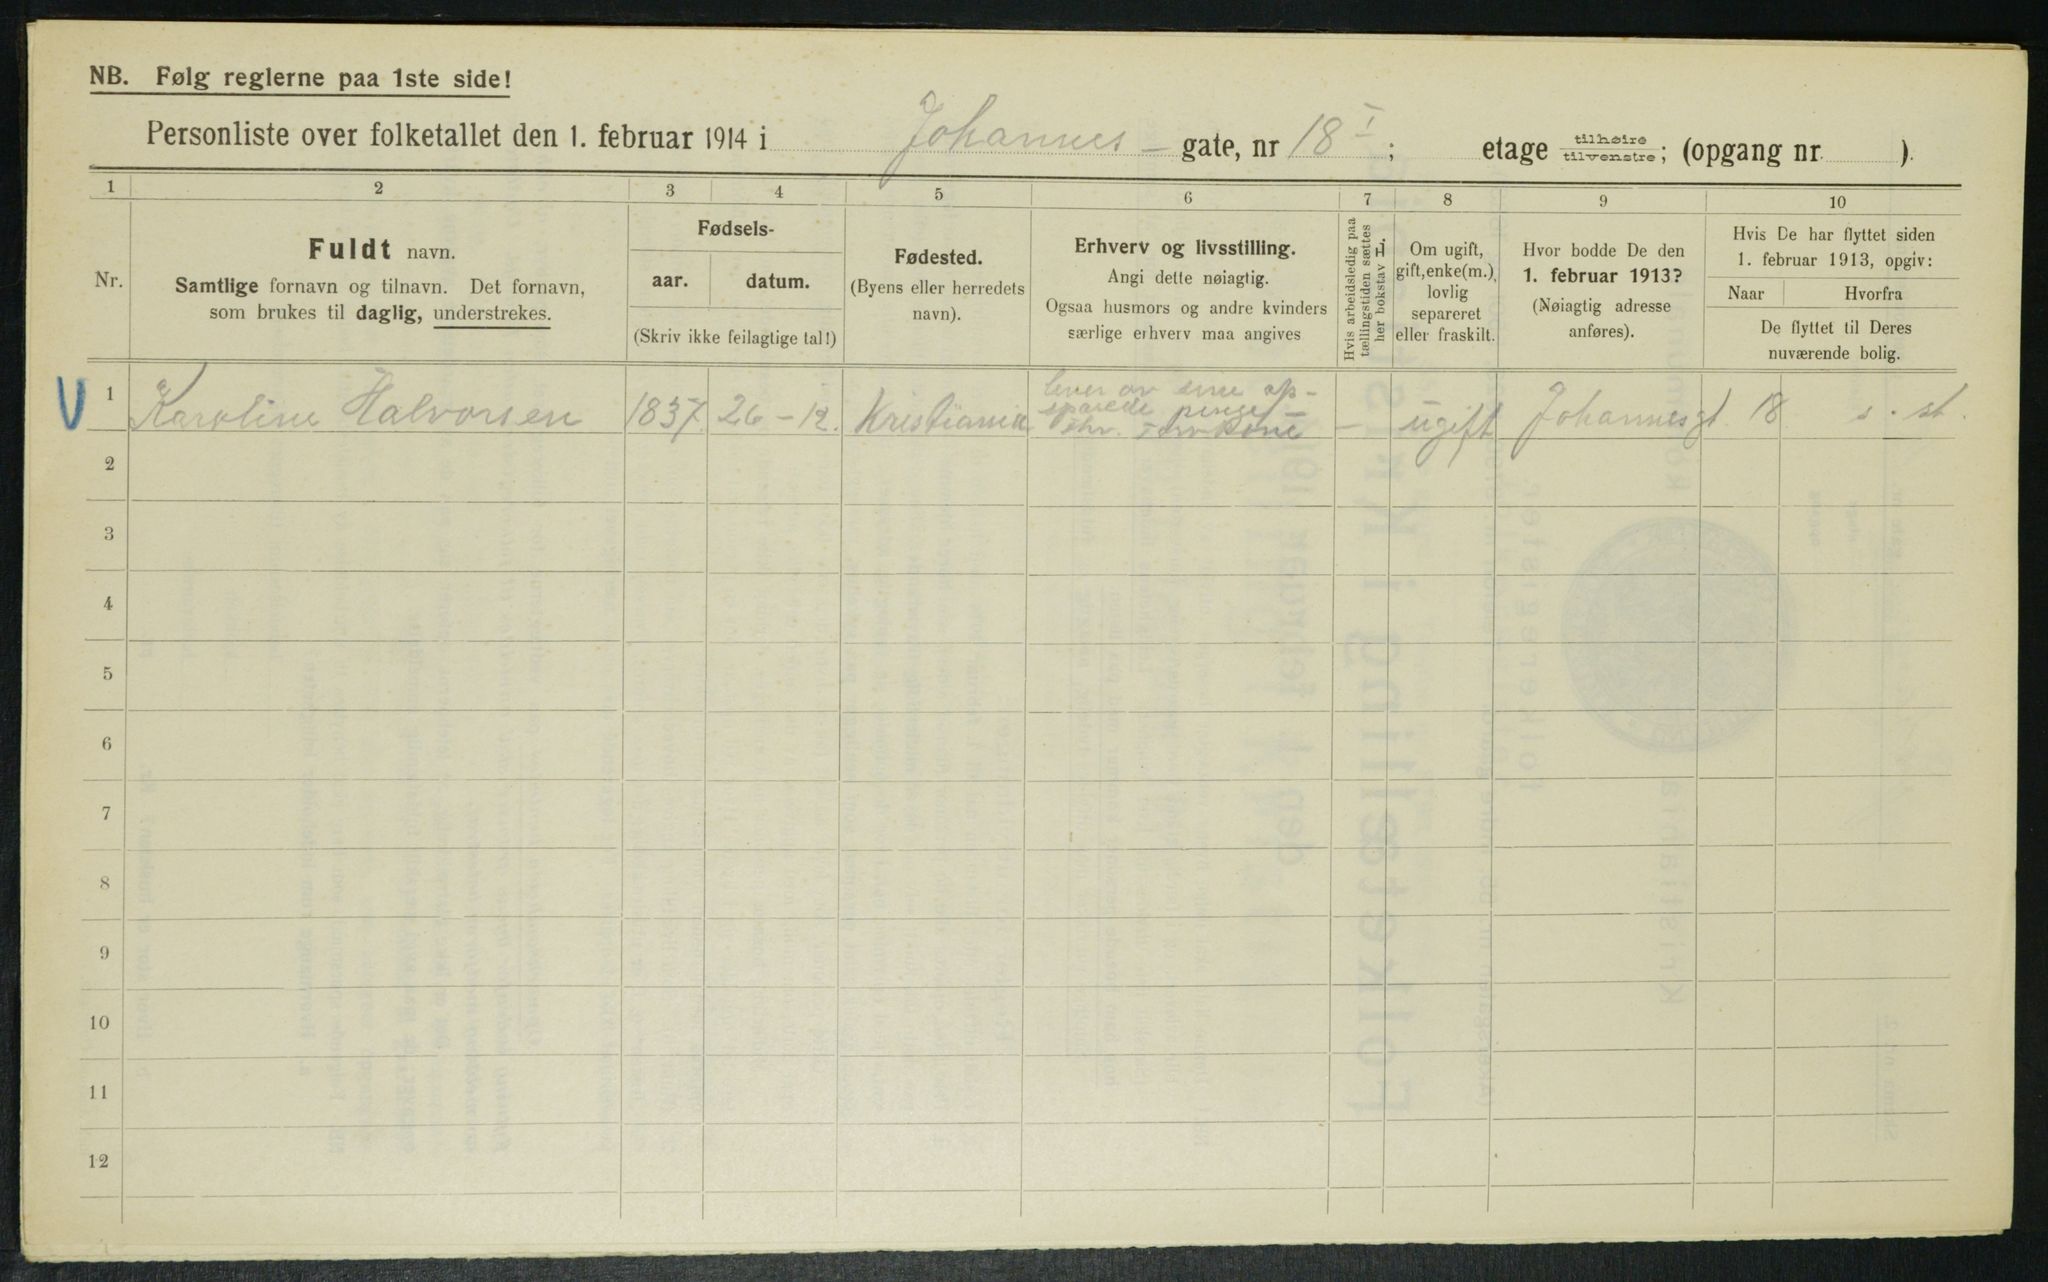 NB. Følg reglerne paa 1ste side!
Personliste over folketallet den 1. februar 1914 i Johannes - gate, nr 18 I ; etage tilhøire tilvenstre; (opgang nr. ).
1 2 3 4 5 6 7 8 9 10
Nr.
Fuldt navn.
Samtlige fornavn og tilnavn. Det fornavn,
som brukes til daglig, understrekes.
Fødsels-
aar. datum.
(Skriv ikke feilagtige tal!)
Fødested.
(Byens eller herredets
navn).
Erhverv og livsstilling.
Angi dette nøiagtig.
Ogsaa husmors og andre kvinders
særlige erhverv maa angives
Hvis arbeidsledig paa
tællingstiden sættes
her bokstav L.
Om ugift,
gift, enke(m.),
lovlig
separeret
eller fraskilt.
Hvor bodde De den
1. februar 1913?
(Nøiagtig adresse
anføres).
Hvis De har flyttet siden
1. februar 1913, opgiv:
Naar Hvorfra
De flyttet til Deres
nuværende bolig.
V 1 Karoline Halvorsen 1837. 26 - 12. Kristiania
lever av sine op-
sparede penge
- ugift Johannesgt 18 s. st.
2
3
4
5
6
7
8
9
10
11
12